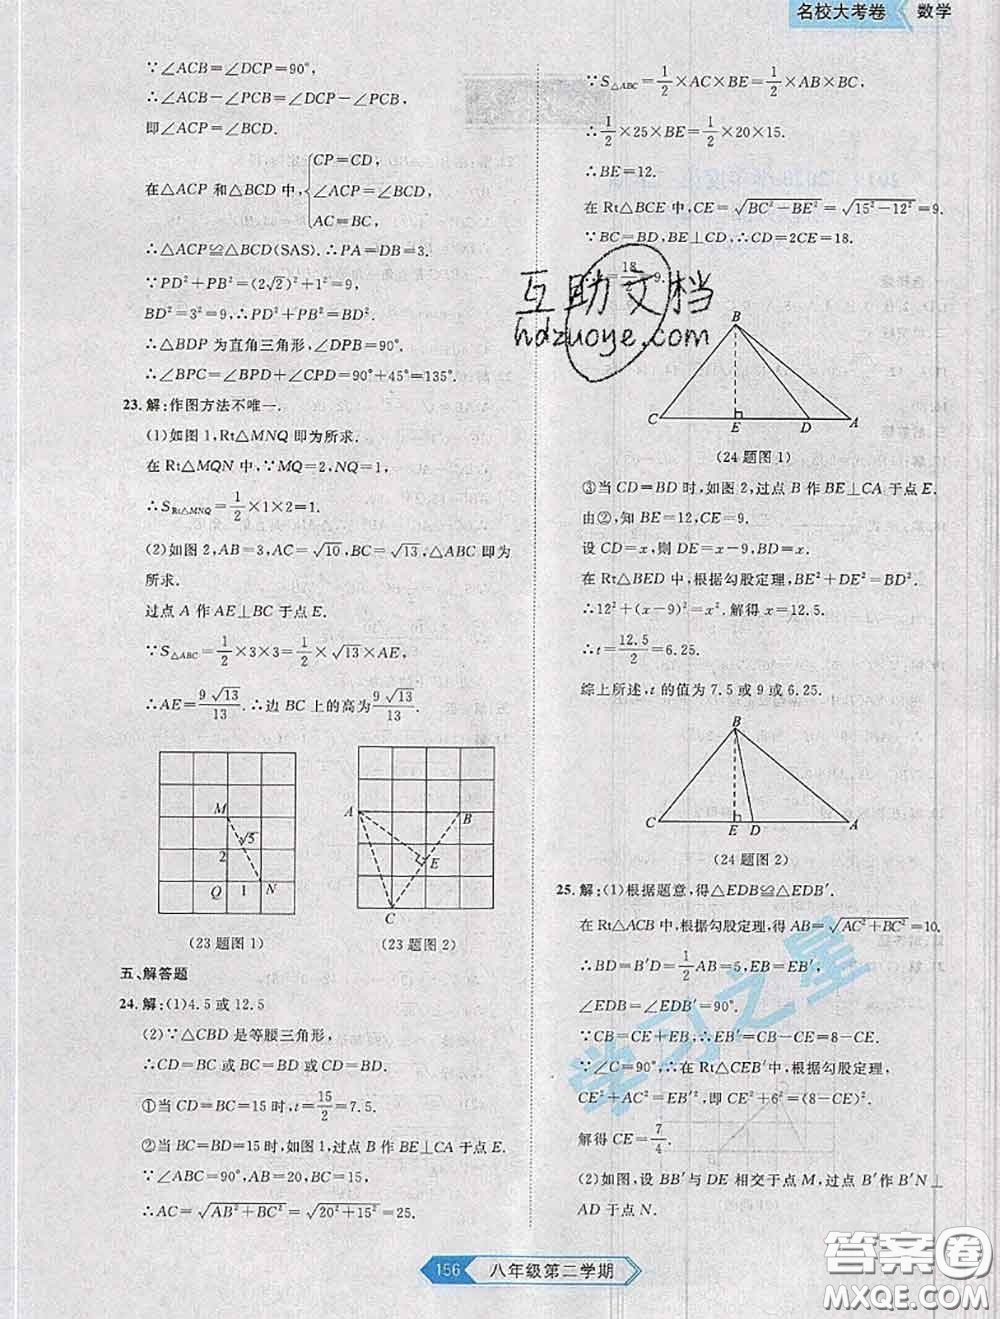 名校大考卷 数学
∵∠ACB=∠DCP=90°,
∴∠ACB-∠PCB=∠DCP-∠PCB,
即∠ACP=∠BCD.
在△ACP 和△BCD 中,
CP=CD,
∠ACP=∠BCD,
AC=BC,
∴△ACP≌△BCD(SAS). ∴PA=DB=3.
∵PD²+PB²=(2√2)²+1²=9,
BD²=3²=9, ∴PD²+PB²=BD².
∴△BDP 为直角三角形,∠DPB=90°.
∴∠BPC=∠BPD+∠CPD=90°+45°=135°.
23.解:作图方法不唯一.
(1)如图 1,Rt△MNQ 即为所求.
在 Rt△MQN 中,∵MQ=2,NQ=1,
∴S_{Rt△MNQ}=1/2×1×2=1.
(2)如图 2,AB=3,AC=√10,BC=√13,△ABC 即为
所求.
过点 A 作 AE⊥BC 于点 E.
∵S_{△ABC}=1/2×3×3=1/2×√13×AE,
∴AE=9√13/13. ∴边 BC 上的高为9√13/13.
M
√5
2
Q 1 N
(23题图 1)
A B
E
C
(23题图 2)
五、解答题
24.解:(1)4.5 或 12.5
(2)∵△CBD 是等腰三角形,
∴CD=BC 或 BC=BD 或 CD=BD.
①当 CD=BC=15 时,t=15/2=7.5.
②当 BC=BD=15 时,如图 1,过点 B 作 BE⊥CA 于点 E.
∵∠ABC=90°,AB=20,BC=15,
∴AC=√(AB²+BC²)=√(20²+15²)=25.
∵S_{△ABC}=1/2×AC×BE=1/2×AB×BC,
∴1/2×25×BE=1/2×20×15.
∴BE=12.
在 Rt△BCE 中,CE=√(BC²-BE²)=√(15²-12²)=9.
∵BC=BD,BE⊥CD,∴CD=2CE=18.
18/2=9.
互助文档
hdzuoye.com
B
C E D A
(24题图 1)
③当 CD=BD 时,如图 2,过点 B 作 BE⊥CA 于点 E.
由②,知 BE=12,CE=9.
设 CD=x,则 DE=x-9,BD=x.
在 Rt△BED 中,根据勾股定理,BE²+DE²=BD².
∴12²+(x-9)²=x². 解得 x=12.5.
∴t=12.5/2=6.25.
综上所述,t 的值为 7.5 或 9 或 6.25.
B
C E D A
(24题图 2)
25.解:(1)根据题意,得△EDB≌△EDB′.
在 Rt△ACB 中,根据勾股定理,得 AB=√(AC²+BC²)=10.
∴BD=DB′=1/2AB=5,EB=EB′,
∠EDB=∠EDB′=90°.
∵CB=CE+EB,∴EB′=CB-CE=8-CE.
∵∠C=90°,∴在 Rt△CEB′中,根据勾股定理,得
CE²+AC²=EB′²,即 CE²+6²=(8-CE)².
解得 CE=7/4.
(2)如图,设 BB′与 DE 相交于点 M,过点 B′作 B′N⊥
AD 于点 N.
学习之星
156 八年级第二学期
答案圈
MXQE.COM